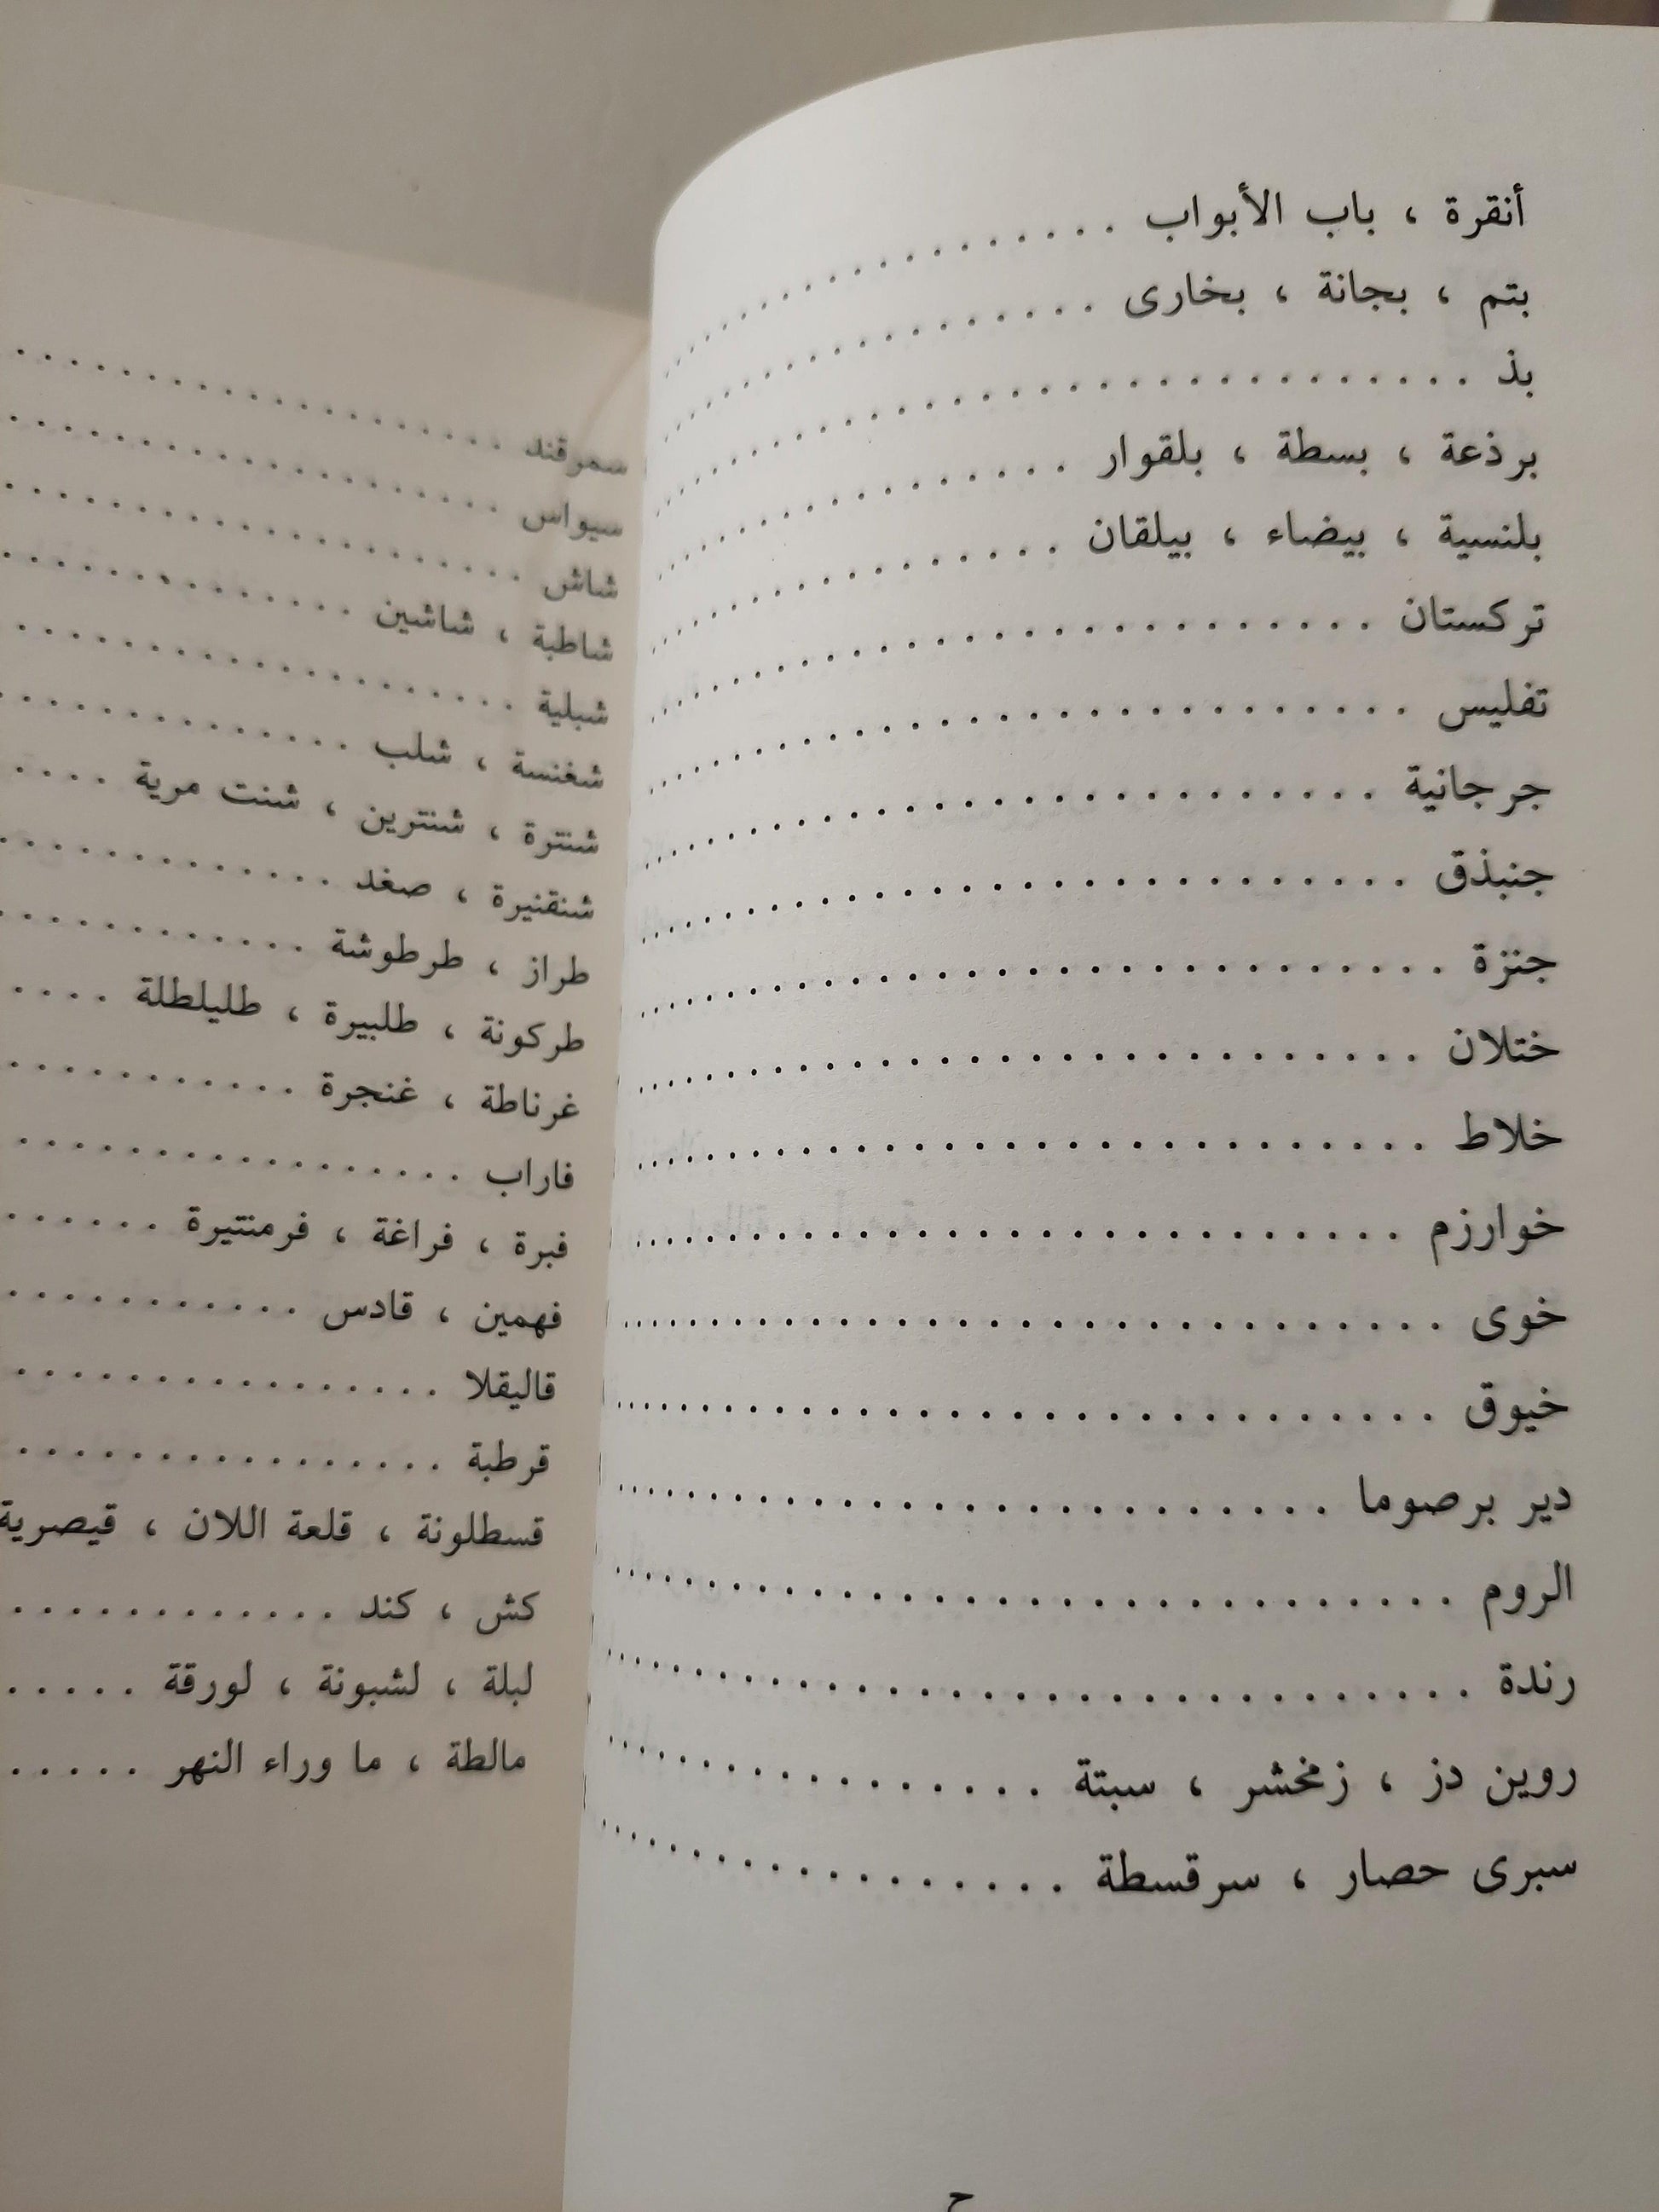 أنقرة ، باب الأبواب . . . . . . . . . . . . . . . . . . . .
بتم ، بجانة ، بخارى . . . . . . . . . . . . . . . . . . . .
بذ . . . . . . . . . . . . . . . . . . . . . . . . . . . . . .
برذعة ، بسطة ، بلقوار . . . . . . . . . . . . . . . . . . . .
بلنسية ، بيضاء ، بيلقان . . . . . . . . . . . . . . . . . . . .
تركستان . . . . . . . . . . . . . . . . . . . . . . . . . .
تفليس . . . . . . . . . . . . . . . . . . . . . . . . . .
جرجانية . . . . . . . . . . . . . . . . . . . . . . . . . .
جنبذق . . . . . . . . . . . . . . . . . . . . . . . . . .
جنزة . . . . . . . . . . . . . . . . . . . . . . . . . .
ختلان . . . . . . . . . . . . . . . . . . . . . . . . . .
خلاط . . . . . . . . . . . . . . . . . . . . . . . . . .
خوارزم . . . . . . . . . . . . . . . . . . . . . . . . . .
خوى . . . . . . . . . . . . . . . . . . . . . . . . . .
خيوق . . . . . . . . . . . . . . . . . . . . . . . . . .
دير برصوما . . . . . . . . . . . . . . . . . . . . . . . .
الروم . . . . . . . . . . . . . . . . . . . . . . . . . .
رندة . . . . . . . . . . . . . . . . . . . . . . . . . .
روين دز ، زمخشر ، سبتة . . . . . . . . . . . . . . . .
سبرى حصار ، سرقسطة . . . . . . . . . . . . . . . .
ح
سمرقند . . . . . . . . . . . . . . . . . . .
سيواس . . . . . . . . . . . . . . . . . . .
شاش . . . . . . . . . . . . . . . . . . . .
شاطبة ، شاشين . . . . . . . . . . . . . .
شبلية . . . . . . . . . . . . . . . . . . .
شغنسة ، شلب . . . . . . . . . . . . . .
شنترة ، شنترين ، شنت مرية . . . .
شنقنيرة ، صغد . . . . . . . . . . . . .
طراز ، طرطوشة . . . . . . . . . . . .
طركونة ، طلبيرة ، طليلطلة . . . .
غرناطة ، غنجرة . . . . . . . . . . .
فاراب . . . . . . . . . . . . . . . .
فبرة ، فراغة ، فرمنتيرة . . . . . .
فهمين ، قادس . . . . . . . . . . .
قاليقلا . . . . . . . . . . . . . . . .
قرطبة . . . . . . . . . . . . . . . .
قسطلونة ، قلعة اللان ، قيصرية
كش ، كند . . . . . . . . . . . .
لبلة ، لشبونة ، لورقة . . . . .
مالطة ، ما وراء النهر . . . . .